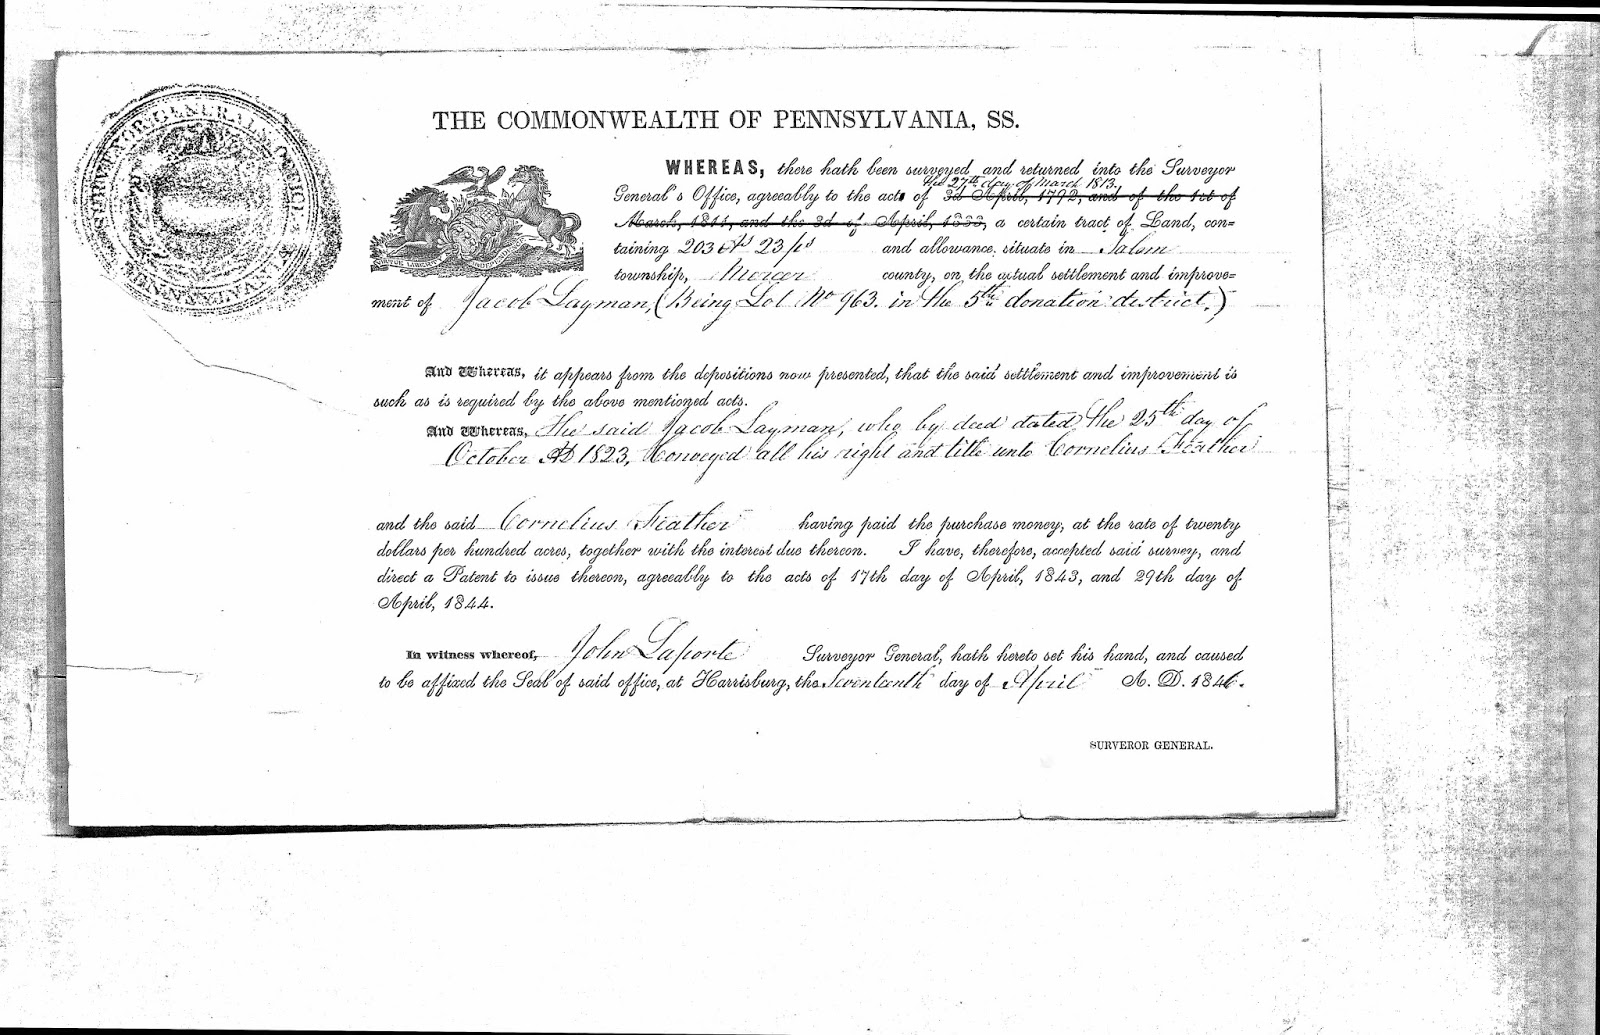 SURVEYOR GENERAL'S OFFICE
PENNSYLVANIA
THE COMMONWEALTH OF PENNSYLVANIA, SS.
WHEREAS, there hath been surveyed and returned into the Surveyor
the 27th day of March 1813.
General's Office, agreeably to the acts of 3d April, 1792, and of the 1st of
March, 1811, and the 3d of April, 1833, a certain tract of Land, con=
taining 203 As 23 ps and allowance, situate in Salem
township, Mercer county, on the actual settlement and improve=
ment of Jacob Layman, (Being Lot No 963. in the 5th donation district.)
And Whereas, it appears from the depositions now presented, that the said settlement and improvement is
such as is required by the above mentioned acts.
And Whereas, The said Jacob Layman, who by deed dated the 25th day of
October AD 1823, Conveyed all his right and title unto Cornelius Feather
and the said Cornelius Feather having paid the purchase money, at the rate of twenty
dollars per hundred acres, together with the interest due thereon. I have, therefore, accepted said survey, and
direct a Patent to issue thereon, agreeably to the acts of 17th day of April, 1843, and 29th day of
April, 1844.
In witness whereof, John Laporte Surveyor General, hath hereto set his hand, and caused
to be affixed the Seal of said office, at Harrisburg, the Seventeenth day of April A. D. 1846.
SURVEROR GENERAL.